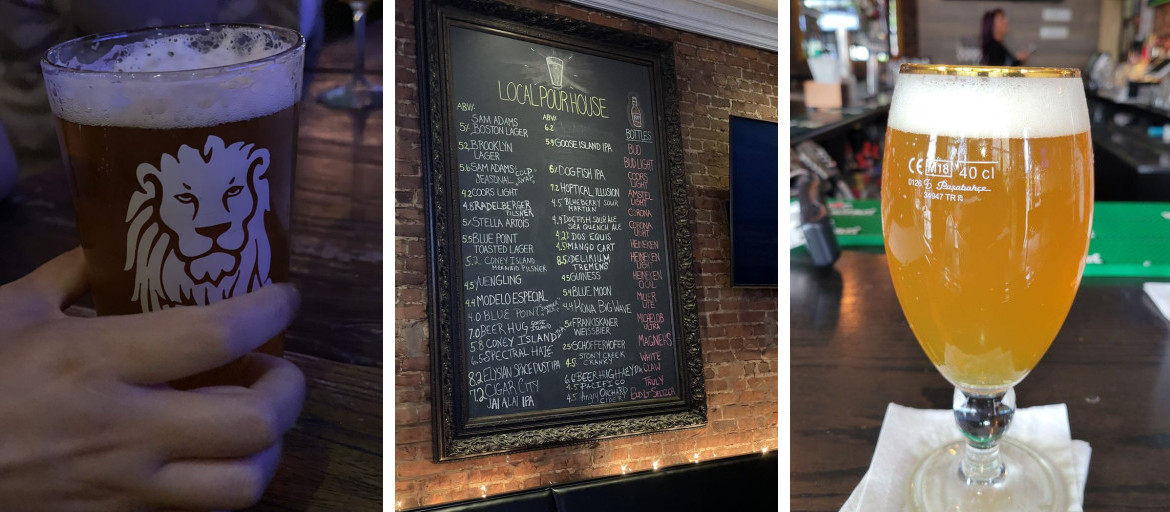 LOCAL POUR HOUSE
ABV%
SAM ADAMS
5% BOSTON LAGER
5.2 BROOKLYN
LAGER
5.6 SAM ADAMS COLD
SEASONAL SNAP
4.2 COORS LIGHT
4.8 RADELBERGER
PILSNER
5% STELLA ARTOIS
5.5 BLUE POINT
TOASTED LAGER
5.2 CONEY ISLAND
MERMAID PILSNER
4.5% YUENGLING
4.4 MODELO ESPECIAL
4.0 BLUE POINT
7.0 BEER HUG GOOSE
ISLAND
5.8 CONEY ISLAND
6.5 SPECTRAL HAZE
8.2 ELYSIAN SPACE DUST IPA
7.2 CIGAR CITY
JAI ALAI IPA
ABV%
6.2
5.9 GOOSE ISLAND IPA
6% DOGFISH IPA
7.2 HOPTICAL ILLUSION
4.5% BLUEBERRY SOUR
MARTIAN
4.9 DOGFISH SOUR ALE
SEA QUENCH ALE
4.2% DOS EQUIS
4.5% MANGO CART
8.5% DELIRIUM
TREMENS
4.5 GUINNESS
5.4 BLUE MOON
4.4 KONA BIG WAVE
5% FRANZISKANER
WEISSBIER
2.5% SCHÖFFERHOFER
4.5 STONY CREEK
CRANKY
6.0 BEER HUG HAZY IPA
4.5 PACIFICO
4.5 Angry ORCHARD
CIDER
BOTTLES
BUD
BUD LIGHT
COORS
LIGHT
AMSTEL
LIGHT
CORONA
CORONA
LIGHT
HEINEKEN
HEINEKEN
LIGHT
HEINEKEN
0.0%
MILLER
LITE
MICHELOB
ULTRA
MAGNERS
WHITE
CLAW
TRULY
Bud Lt Seltzer
CE M18 40 cl
0126 Paşabahçe
34947 TR